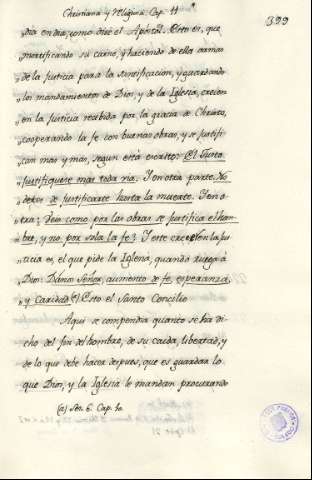 Christiana y Religiosa. Cap. 11
399
„ dia en dia, como dice el Apóstol. Esto es, que
„ mortificando su carne, y haciendo de ella armas
„ de la justicia para la santificacion, y guardando
„ los mandamientos de Dios, y de la Iglesia, crecen
„ en la justicia recibida por la gracia de Christo,
„ cooperando la fe con buenas obras, y se justifi-
„ can mas y mas, segun está escrito: El Justo
„ justifiquese mas toda via. Y en otra parte: No
„ dexes de justificarte hasta la muerte. Y en o-
„ tra: Veis como por las obras se justifica el hom-
„ bre, y no por sola la fe? Y este crecer en la jus-
„ ticia es, el que pide la Iglesia, quando ruega á
„ Dios: Danos Señor, aumento de fe, esperanza,
„ y Caridad (a) Esto el Santo Concilio
Aqui se compendia quanto se ha di-
cho del fin del hombre, de su caida, libertad, y
de lo que debe hacer despues, que es guardar lo
que Dios, y la Iglesia le mandan, procurando
(a) Ses. 6. Cap. 10.